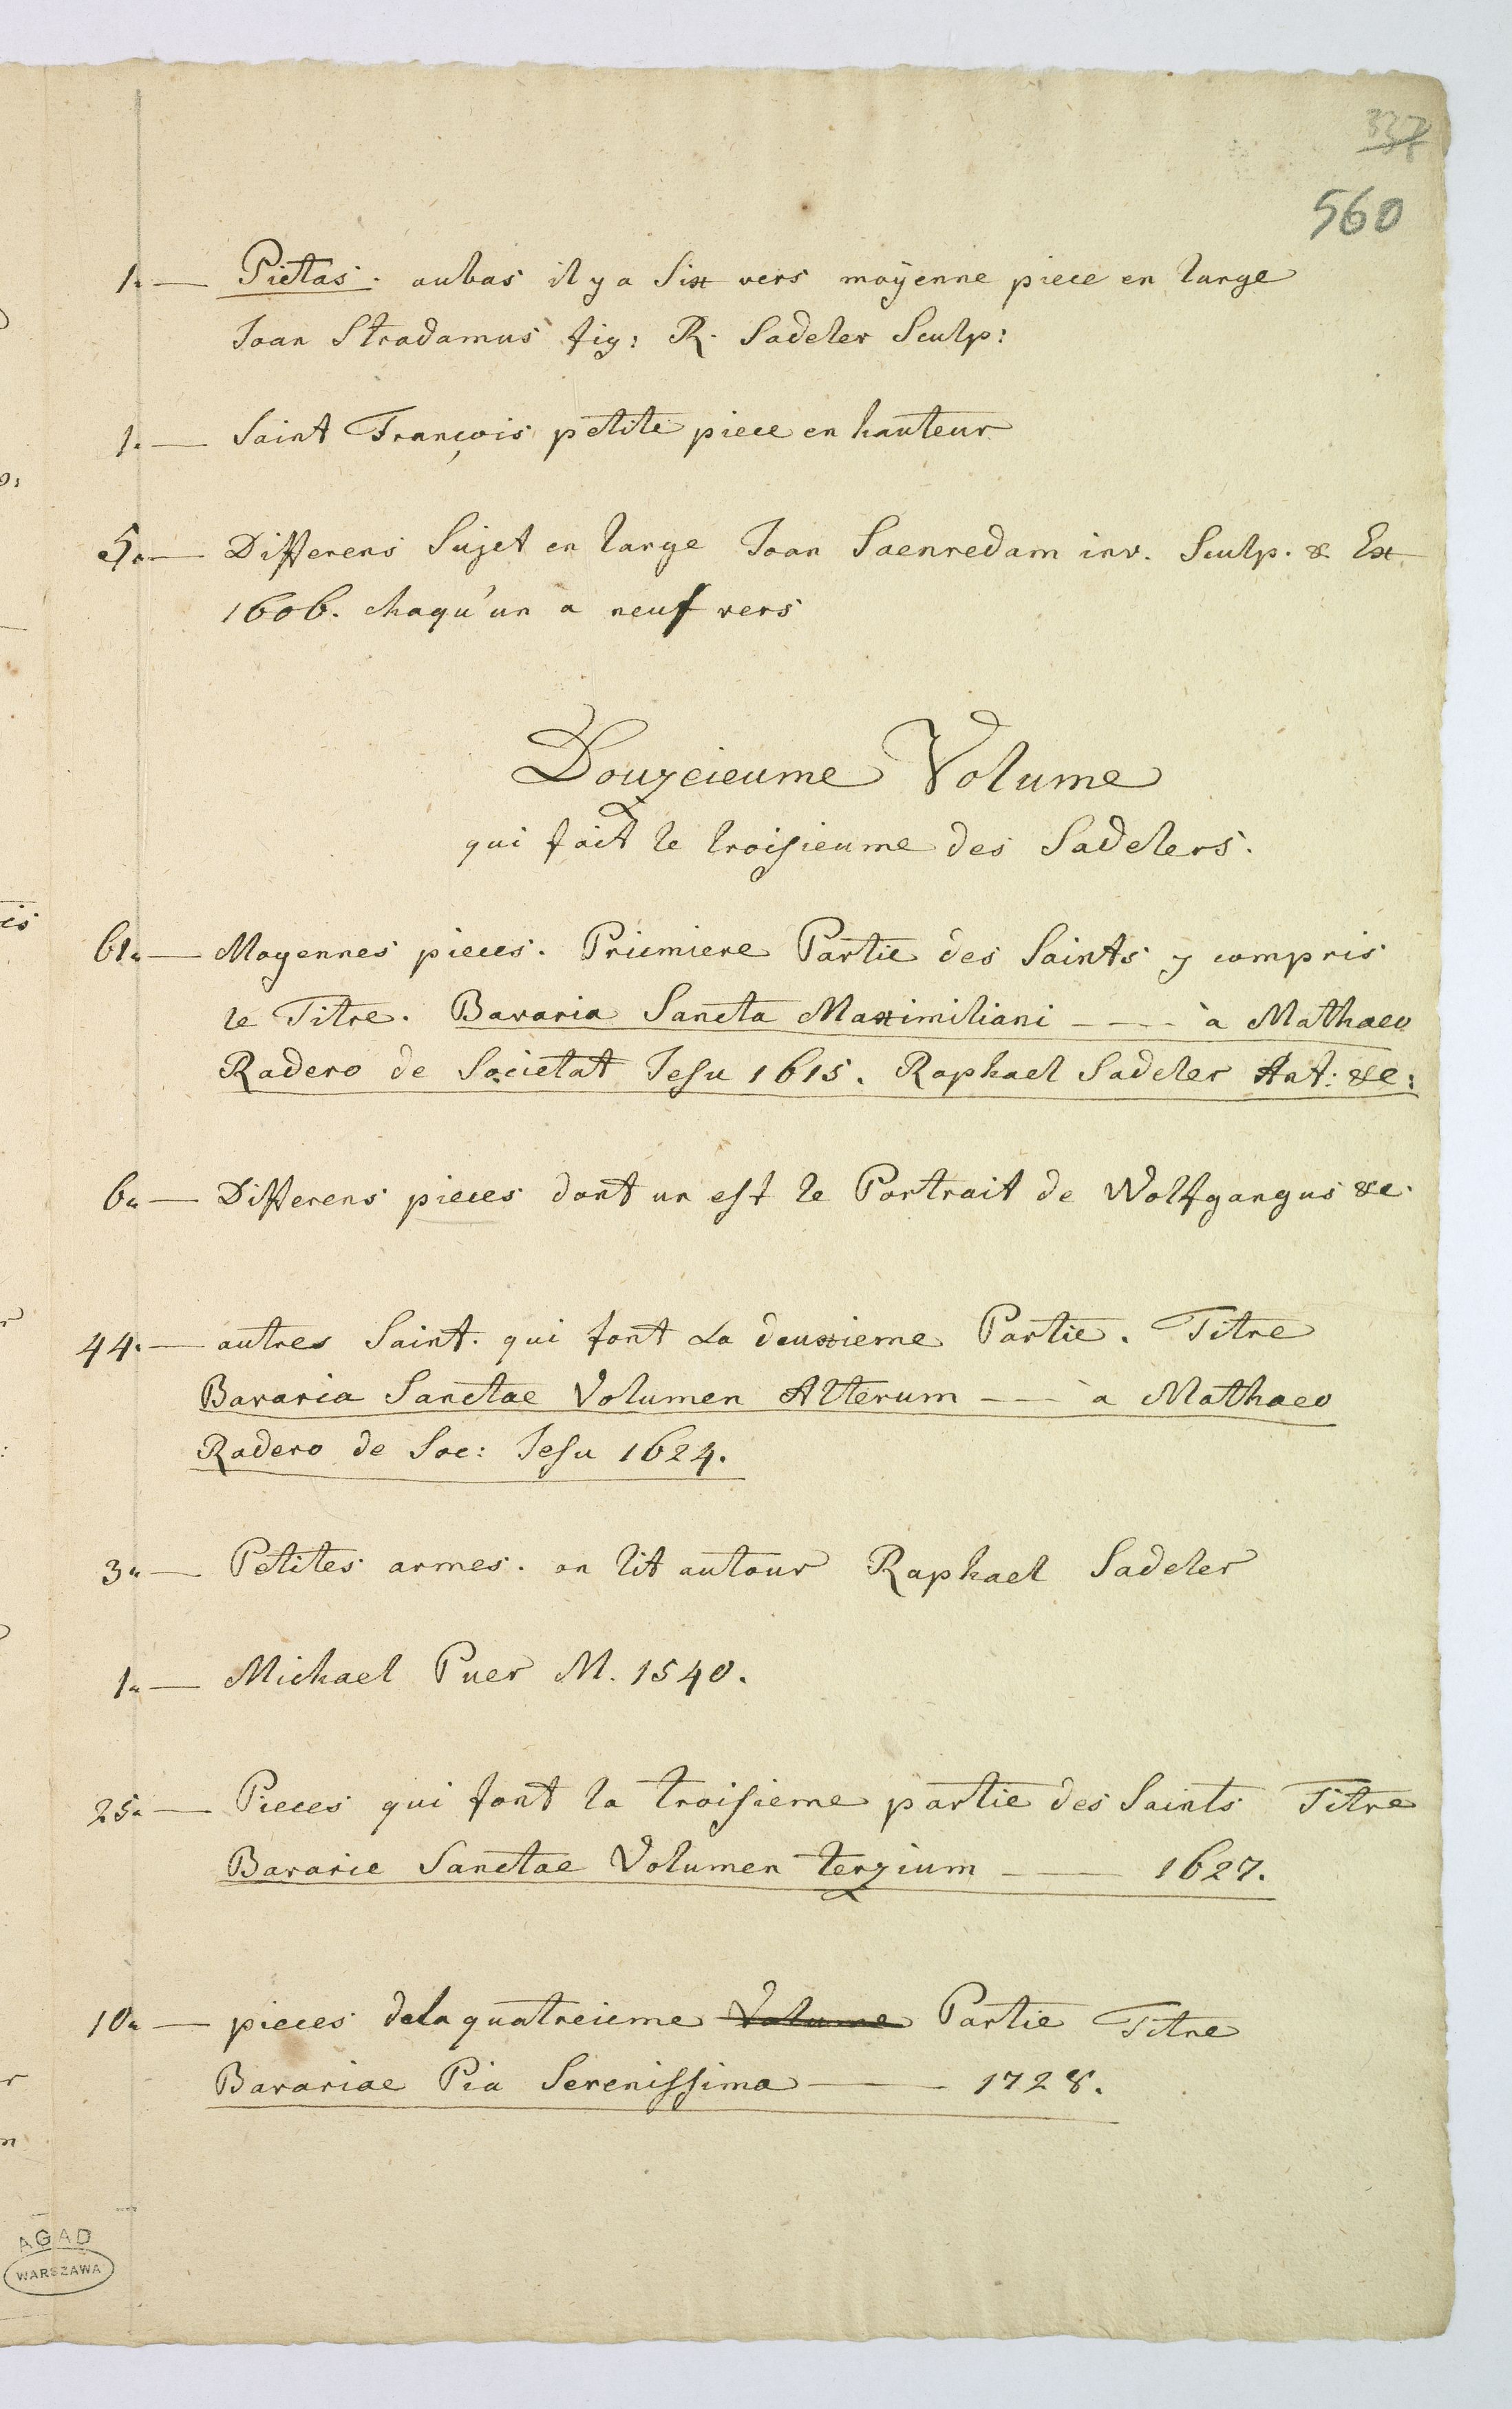 337
560
1. — Pietas. aubas il y a Six vers moÿenne piece en large
Joan Stradamus fig: R. Sadeler Sculp:
1. — Saint François petite piece en hauteur
5. — Differens Sujet en large Joan Saenredam inv. Sculp. & Ex
1606. chaqu'un a neuf vers
Douzeieume Volume
qui fait le troisieume des Sadelers.
61. — Moyennes pieces. Priemiere Partie des Saints y compris
le Titre. Bavaria Sancta Maximiliani — — à Mathaeo
Radero de Societat Jesu 1615. Raphael Sadeler Ant: &c:
6. — Differens pieces dont un est le Portrait de Wolfgangus &c.
44. — autres Saint. qui font La deuxieme Partie. Titre
Bavaria Sanctae Volumen Alterum — — à Mathaeo
Radero de Soc: Jesu 1624.
3. — Petites armes. on lit autour Raphael Sadeler
1. — Michael Puer M. 1540.
25. — Pieces qui font la troisieme partie des Saints Titre
Bavarie Sanctae Volumen terzium — 1627.
10. — pieces dela quatreieme Volume Partie Titre
Bavariae Pia Serenissima — 1728.
AGAD
WARSZAWA